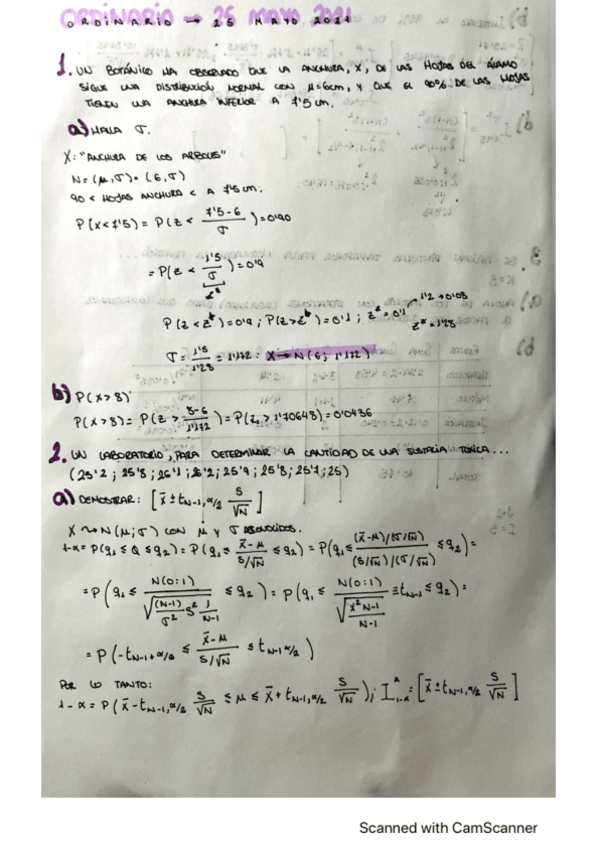 ORDINARIO → 25 MAYO 2021
1. UN BOTÁNICO HA OBSERVADO QUE LA ANCHURA, X, DE LAS HOJAS DEL ÁLAMO
SIGUE UNA DISTRIBUCIÓN NORMAL CON μ=6cm, Y QUE EL 90% DE LAS HOJAS
TIENEN UNA ANCHURA INFERIOR A 7'5 cm.
a) HALLA σ.
X: "ANCHURA DE LOS ARBOLES"
N=(μ,σ)=(6,σ)
90 < HOJAS ANCHURA < A 7'5 cm.
P(X<7'5) = P(Z < (7'5-6)/σ) = 0'90
= P(Z < 1'5/σ) = 0'9
z*
P(Z<z*) = 0'9 ; P(Z>z*) = 0'1 ; z* = 0'1
1'2 + 0'08
z* = 1'28
σ = 1'5/1'28 = 1'172 : X → N(6; 1'172)
b) P(X>8)
P(X>8) = P(Z > (8-6)/1'172) = P(Z > 1'70648) = 0'0436
2. UN LABORATORIO, PARA DETERMINAR LA CANTIDAD DE UNA SUSTACIA TOXICA...
(25'2 ; 25'8 ; 26'1 ; 25'9 ; 25'8 ; 25'7 ; 25)
a) DEMOSTRAR: [x̄ ± t_{N-1, α/2} S/√N]
X ~> N(μ;σ) CON μ Y σ
1-α = P(q₁ ≤ Q ≤ q₂) = P(q₁ ≤ (x̄-μ)/(S/√N) ≤ q₂) = P(q₁ ≤ ((x̄-μ)/(σ/√N))/((S/√N)/(σ/√N)) ≤ q₂) =
= P(q₁ ≤ N(0:1)/√((N-1)/σ² S² 1/(N-1)) ≤ q₂) = P(q₁ ≤ N(0:1)/√(χ² N-1/(N-1)) ≡ t_{N-1} ≤ q₂) =
= P(-t_{N-1, α/2} ≤ (x̄-μ)/(S/√N) ≤ t_{N-1, α/2})
POR LO TANTO:
1-α = P(x̄ - t_{N-1, α/2} S/√N ≤ μ ≤ x̄ + t_{N-1, α/2} S/√N) ; I_{1-α} = [x̄ ± t_{N-1, α/2} S/√N]
Scanned with CamScanner